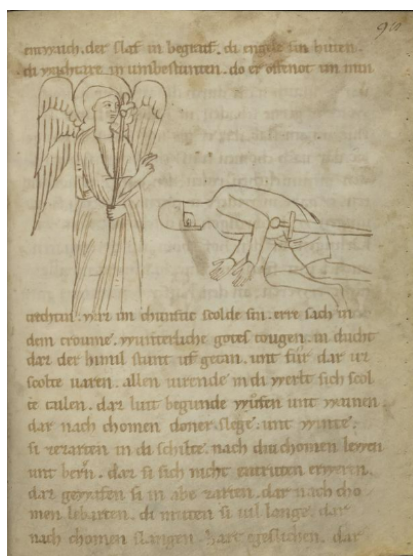 der slaf in begreif. di engele sin huten.
di wachtare in umbestunten. do er offenot im min
trechtin. waz im chunftic scolde sin. erre sach in
dem troume. wunterliche gotes tougen. in ducht
daz der himil stunt uf getan. unt für dar uz
scolte uaren. allen in di werlt sich scol
te daz liut begunde wůfen unt wainen.
dar nach chomen doner slege. unt winte.
si zezarten in di schilte. nach diu chomen lewen
unt bern. daz si sich nicht erweren.
daz gewafen si in abe zarten. dar nach cho
men lebarten. di muten si uil lange. dar
nach chomen slangen. dar